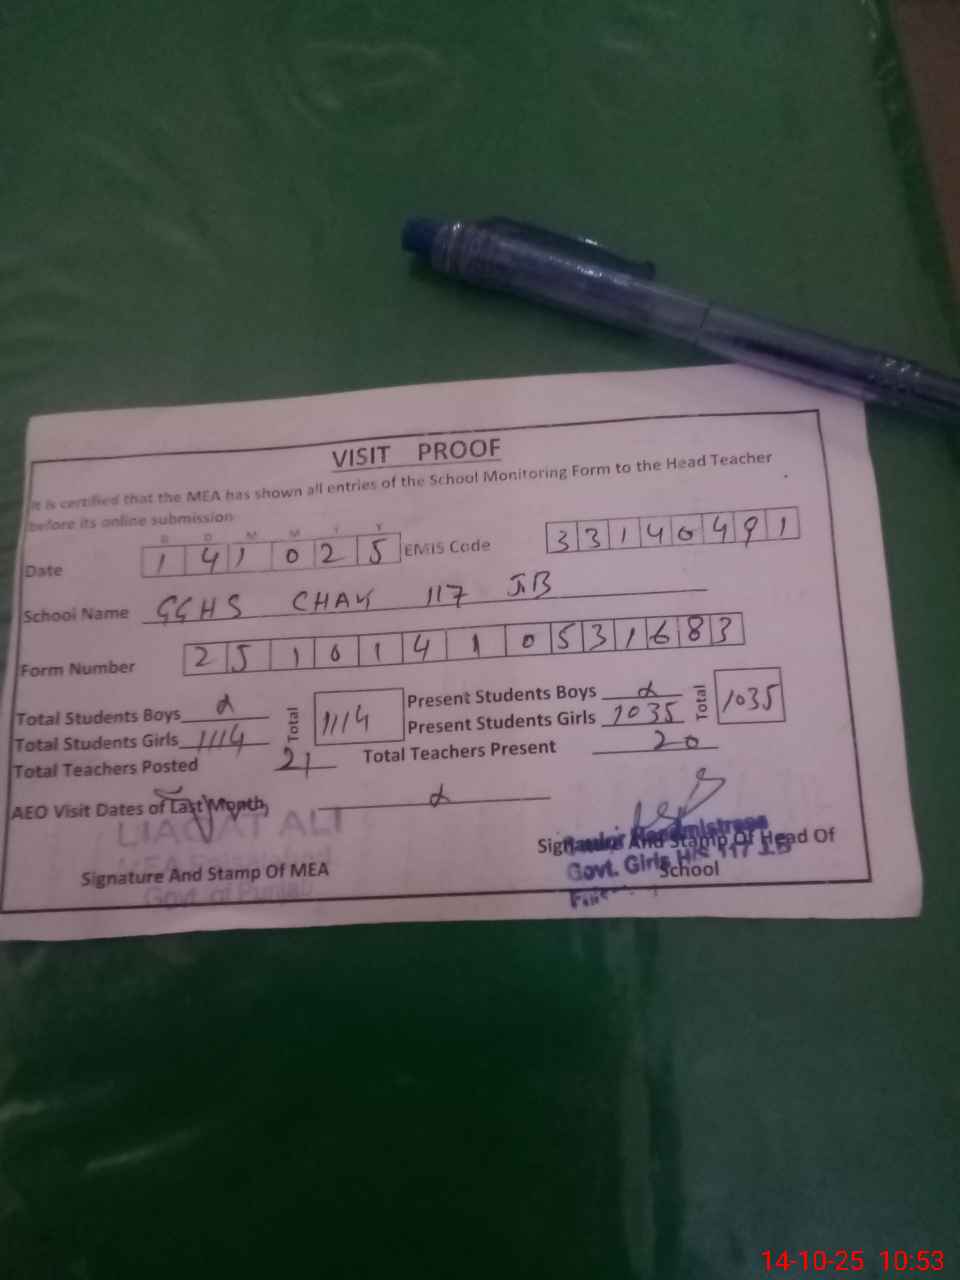 VISIT PROOF
It is certified that the MEA has shown all entries of the School Monitoring Form to the Head Teacher
before its online submission
D D M M Y Y
Date 1 4 1 0 2 5 EMIS Code 3 3 1 4 0 4 9 1
School Name GGHS CHAK 117 JB
Form Number 2 5 1 0 1 4 1 0 5 3 1 6 8 3
Total Students Boys Total 1114 Present Students Boys Total 1035
Total Students Girls 1114 Present Students Girls 1035
Total Teachers Posted 21 Total Teachers Present 20
AEO Visit Dates of Last Month,
LIAQAT ALI
MEA Faisalabad
Govt. of Punjab
Signature And Stamp Of MEA
Signature And Stamp Of Head Of
School
Senior Headmistress
Govt. Girls H/S 117 J.B
14-10-25 10:53